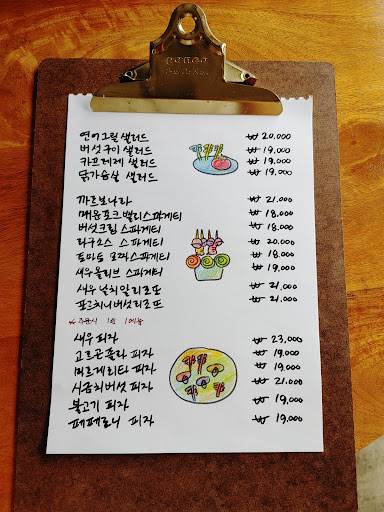 연어그릴 샐러드 ₩ 20,000
버섯구이 샐러드 ₩ 19,000
카프레제 샐러드 ₩ 19,000
닭가슴살 샐러드 ₩ 19,000
까르보나라 ₩ 21,000
매운포크밸리스파게티 ₩ 18,000
버섯크림 스파게티 ₩ 18,000
라구소스 스파게티 ₩ 20,000
토마토 모짜스파게티 ₩ 18,000
새우올리브 스파게티 ₩ 19,000
새우날치알리조또 ₩ 21,000
포르치니버섯리조또 ₩ 21,000
새우피자 ₩ 23,000
고르곤졸라 피자 ₩ 19,000
마르게리타 피자 ₩ 19,000
시금치버섯 피자 ₩ 21,000
불고기 피자 ₩ 19,000
페페로니 피자 ₩ 19,000